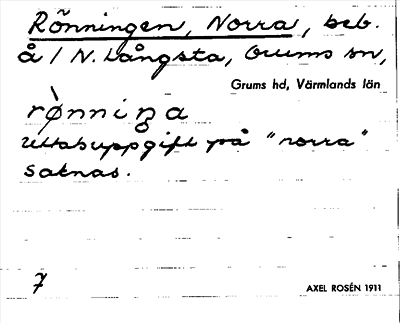 Rönningen, Norra, beb.
å 1 N. Långsta, Grums sn,
Grums hd, Värmlands län
rø̀nniŋa
Uttalsuppgift på "norra"
saknas.
7 AXEL ROSÉN 1911